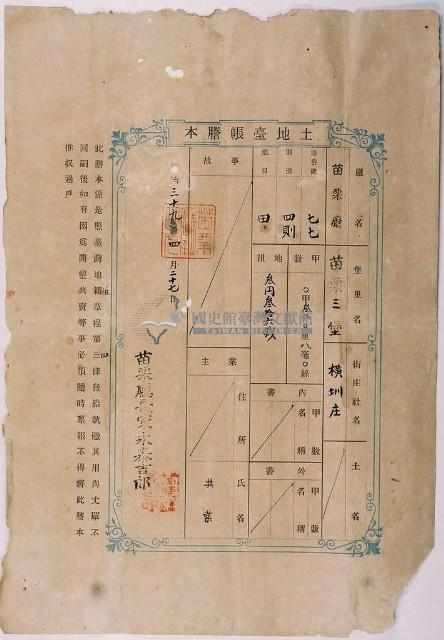 土地臺帳謄本
廳名
苗栗廳
堡里名
苗栗三堡
街庄社名
橫圳庄
土名
地番號
七七
則別
四則
地目
田
甲數
地租
叁円叁拾六
內書
甲數
名稱
外書
甲數
名稱
事故
業主
住所
氏名
共業
三十九年四月二十七日
苗栗廳長家永泰吉郎
此謄本係是照臺灣地籍章程第三條發給就過其用與丈單不
同嗣後如有因爲開墾典賣等事必須隨時稟報不得將此謄本
推收過戶
國史館臺灣文獻館
TAIWAN HISTORICA